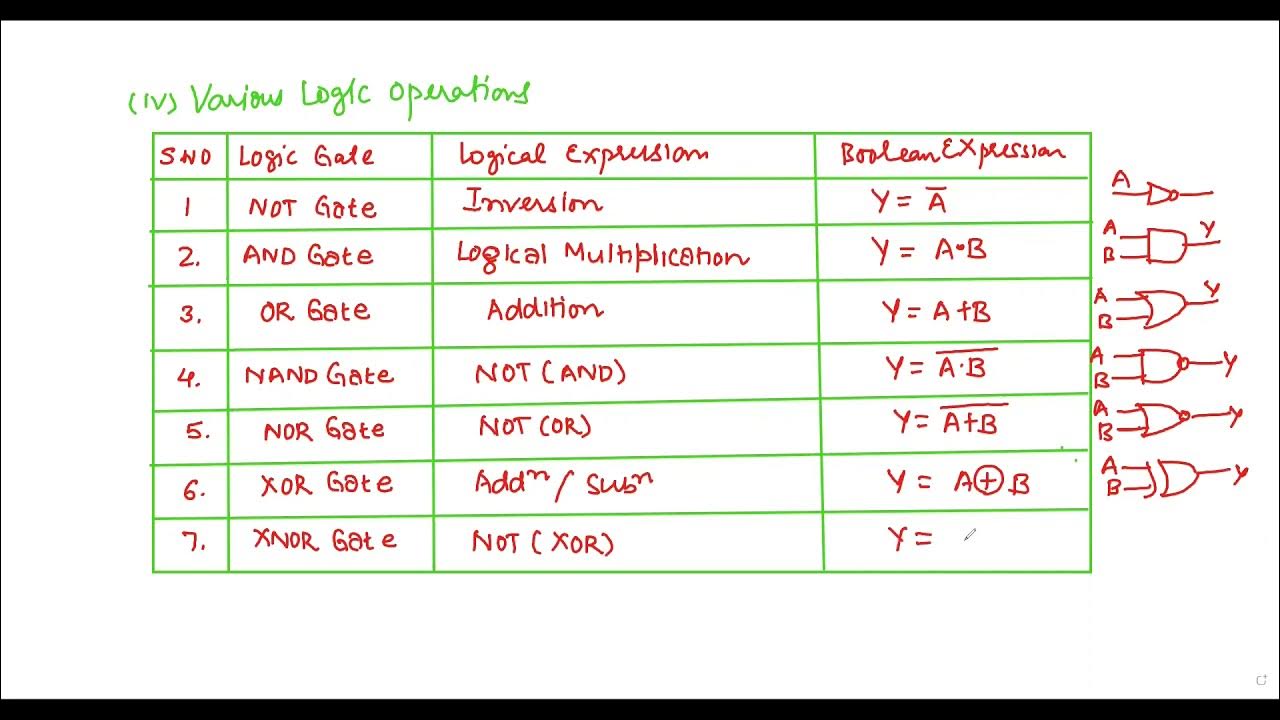 (iv) Various Logic Operations
SNO Logic Gate Logical Expression Boolean Expression
1 NOT Gate Inversion Y = A̅
A
2. AND Gate Logical Multiplication Y = A•B
A Y
B
3. OR Gate Addition Y = A+B
A Y
B
4. NAND Gate NOT (AND) Y = A̅·̅B̅
A Y
B
5. NOR Gate NOT (OR) Y = A̅+̅B̅
A Y
B
6. XOR Gate Addⁿ / Subⁿ Y = A⊕B
A Y
B
7. XNOR Gate NOT (XOR) Y =